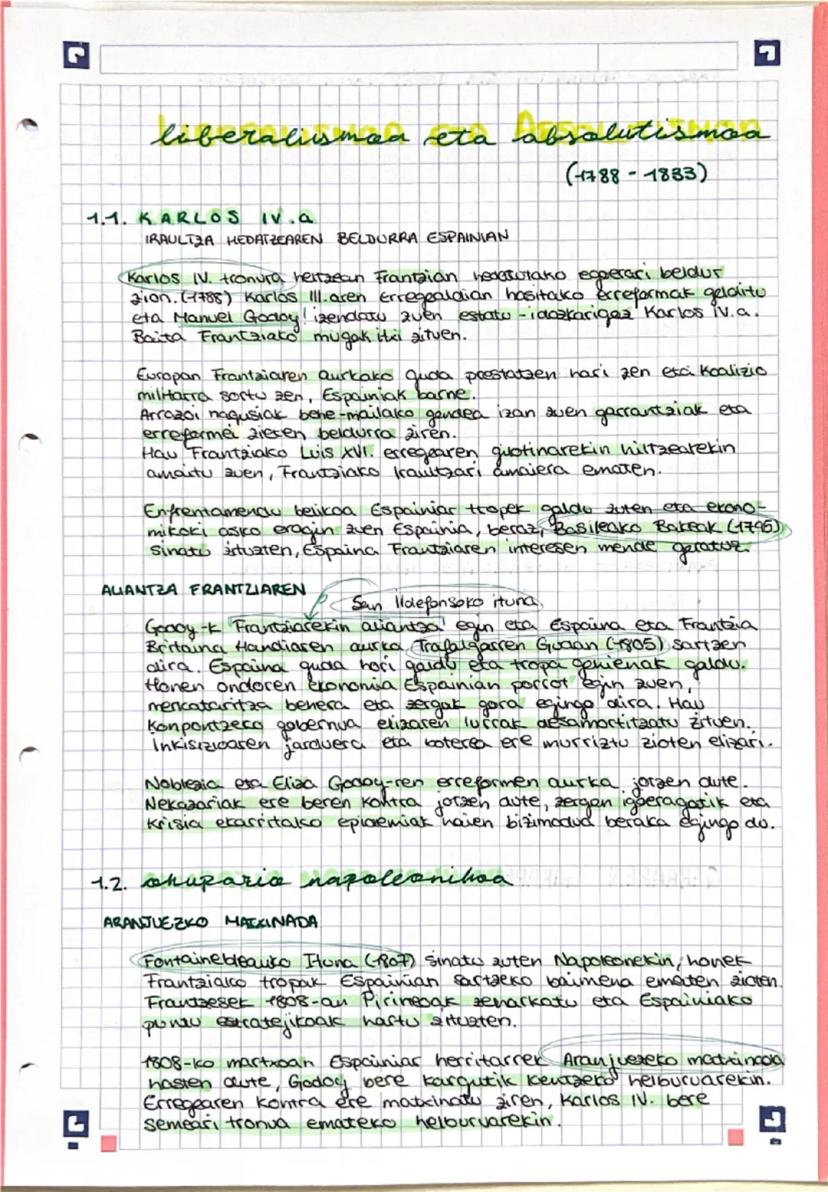 liberalismoa eta absolutismoa
(1788 - 1833)
1.1. KARLOS IV.a
IRAULTZA HEDATZEAREN BELDURRA ESPAINIAN
Karlos IV. tronura heltzean Frantzian hedatutako egoerari beldur
zion. (1788) Karlos III.aren Erregealdian hasitako erreformak gelditu
eta Manuel Godoy izendatu zuen estatu-idazkarigoz Karlos IV.a.
Baita Frantziako mugak itxi zituen.
Europan Frantziaren aurkako guda prestatzen hari zen eta Koalizio
militarra sortu zen, Espainiak barne.
Arrazoi nagusiak behe-mailako gendea izan zuen garrantziak eta
erreformei zieten beldurra ziren.
Hau Frantziako Luis XVI. erregearen guotinarekin hiltzearekin
amaitu zuen, Frantziako Iraultzari amaiera ematen.
Enfrentamendu belikoa Espainiar tropek galdu zuten eta ekono-
mikoki asko eragin zuen Espainia, beraz, Basileako Bakeak (1795)
sinatu zituzten, Espaina Frantziaren interesen mende geratuz.
ALIANTZA FRANTZIAREN
San Ildefonsoko ituna
Godoy-k Frantziarekin aliantza egin eta Espaina eta Frantzia
Britaina Handiaren aurka Trafalgarren Gudan (1805) sartzen
dira. Espaina guda hori galdu eta tropa gehienak galdu.
Honen ondoren ekonomia Espainian porrot egin zuen,
merkataritza behera eta zergak gora egingo dira. Hau
konpontzeko gobernua elizaren lurrak desamortitzatu zituen.
Inkisizioaren jarduera eta boterea ere murriztu zioten elizari.
Noblezia eta Eliza Godoy-ren erreformen aurka jotzen dute.
Nekazariak ere beren kontra jotzen dute, zergen igoeragatik eta
krisia ekarritako epidemiak haien bizimodua beraka egingo du.
1.2. okupazio napoleonikoa
ARANJUEZKO MATXINADA
Fontainebleauko Ituna (1807) sinatu zuten Napoleonekin, honek
Frantziako tropak Espainian sartzeko baimena ematen zioten.
Frantzesek 1808-an Pirineoak zeharkatu eta Espainiako
puntu estratejikoak hartu zituzten.
1808-ko martxoan Espainiar herritarrek Aranjuezeko matxinada
hasten dute, Godoy bere kargutik kentzeko helburuarekin.
Erregearen kontra ere matxinatu ziren, Karlos IV. bere
semeari tronua emateko helburuarekin.